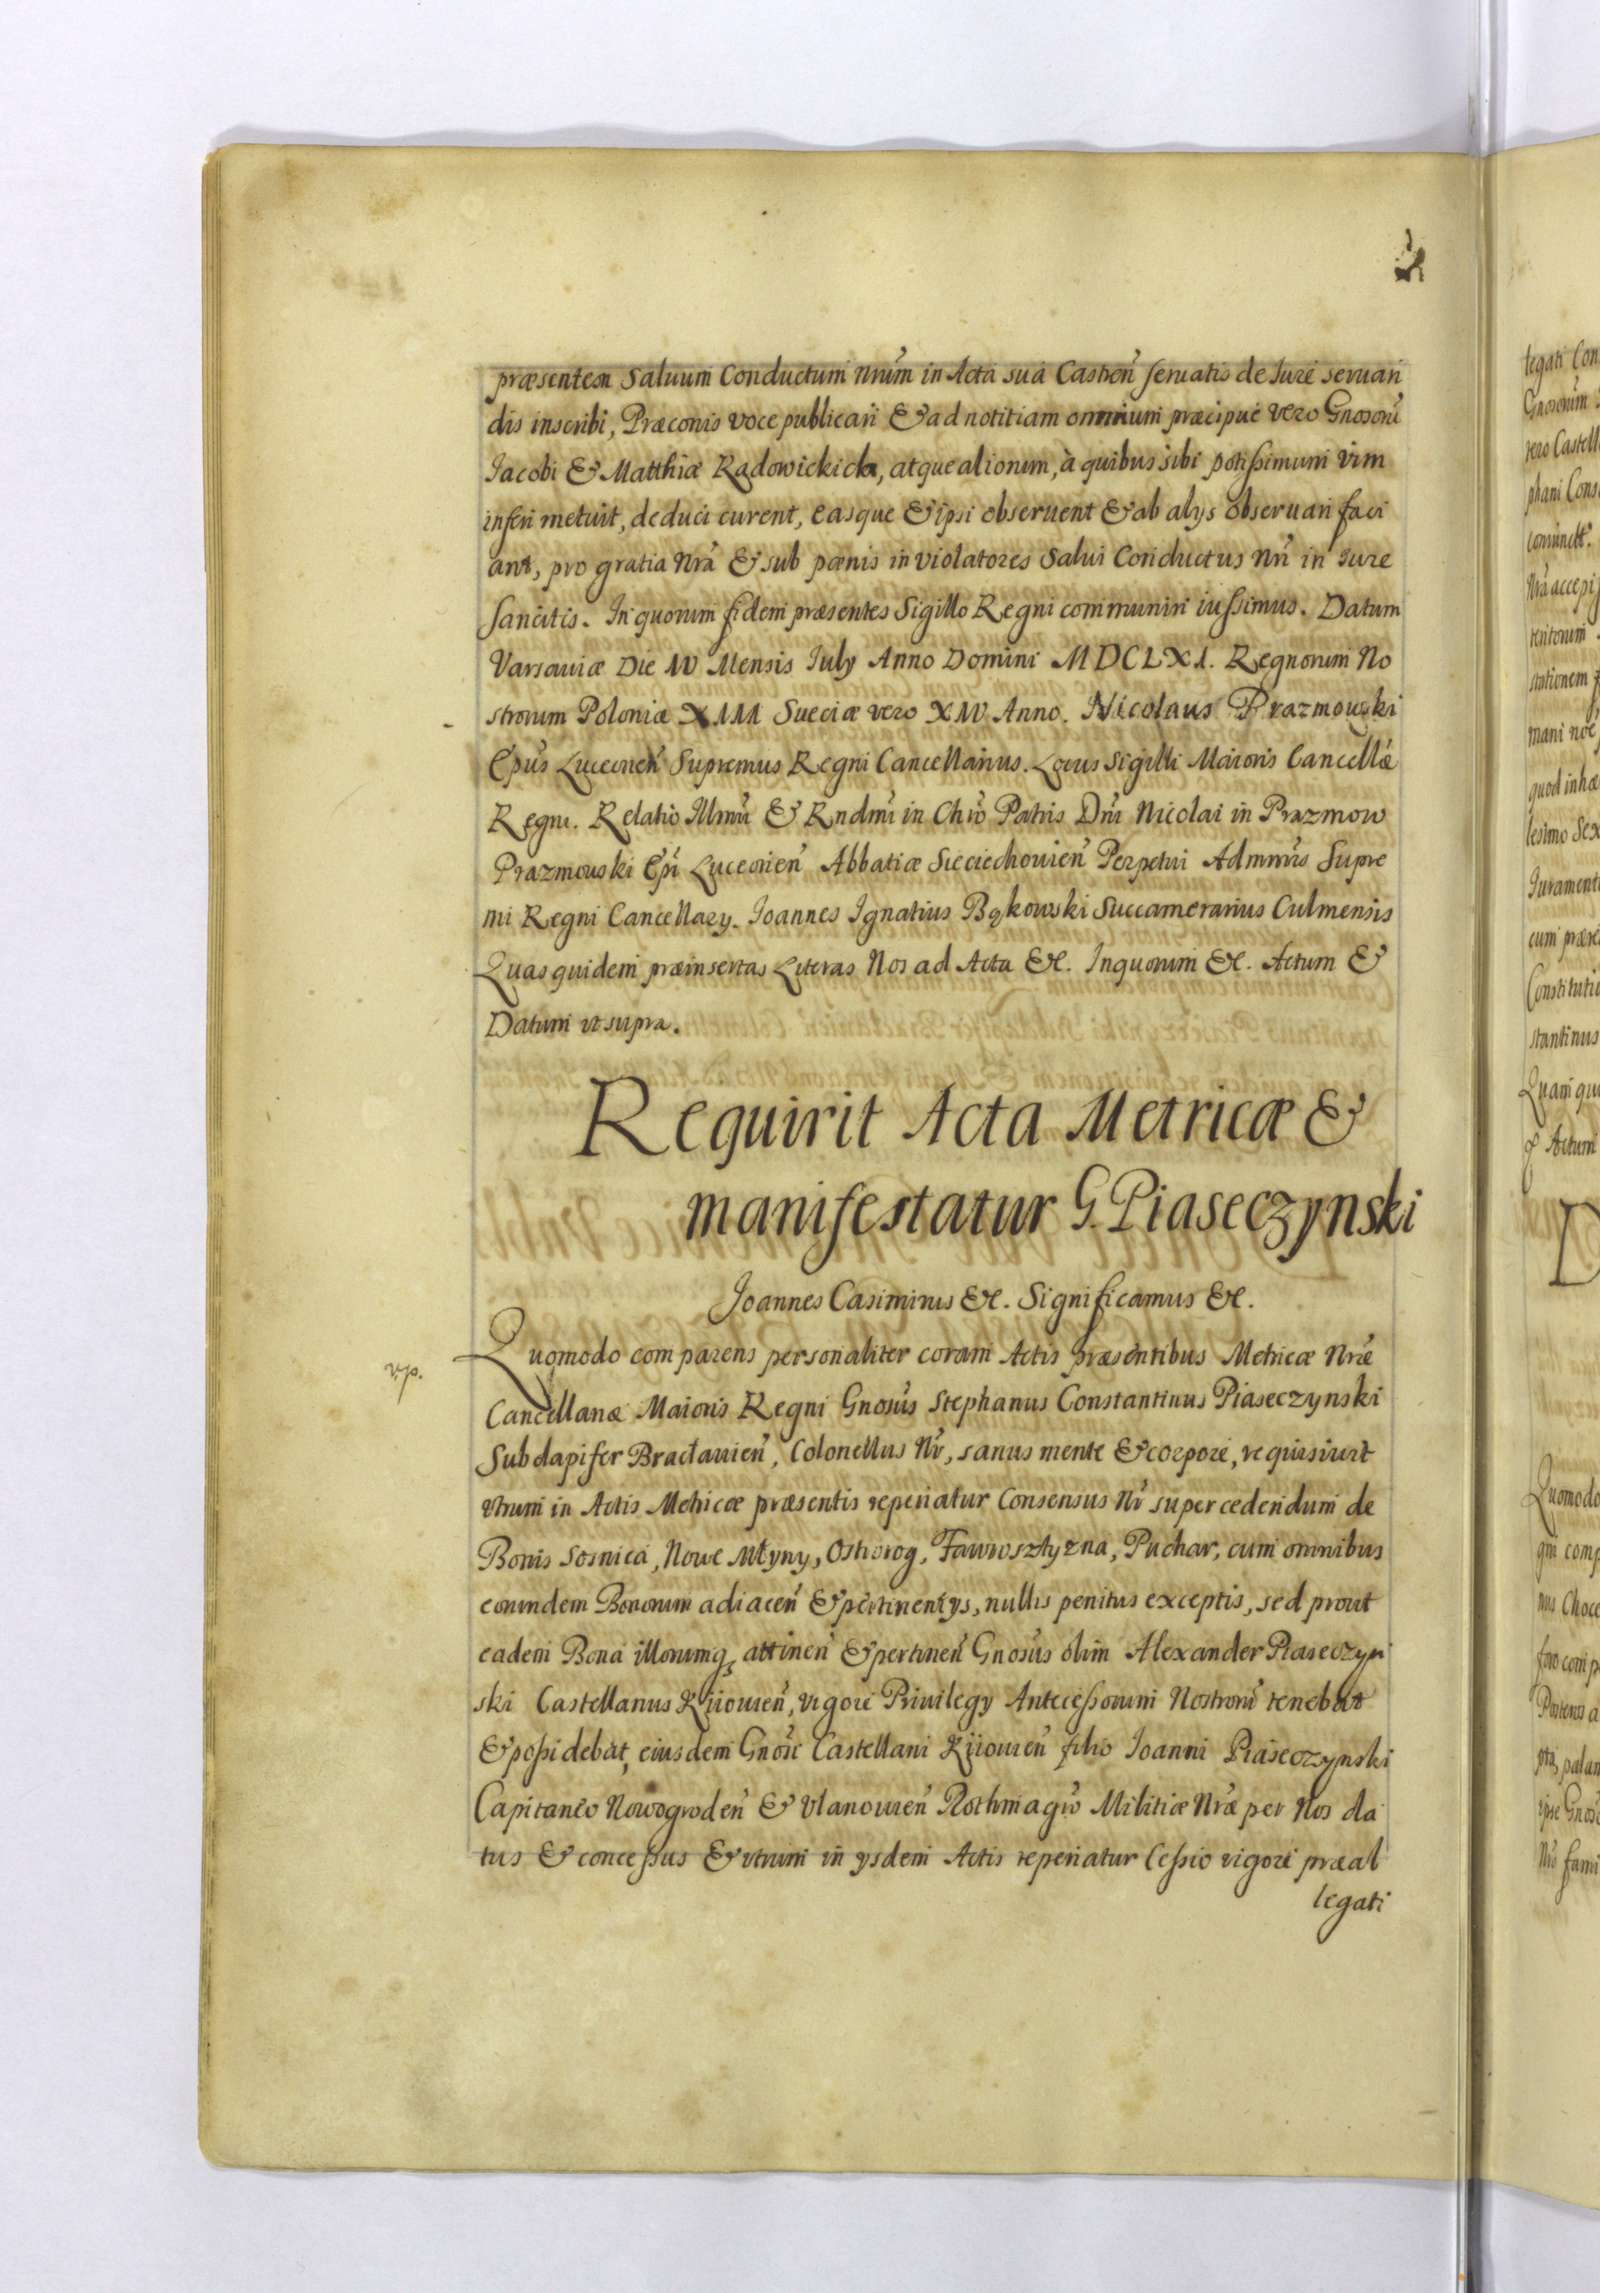 præsentem Saluum Conductum nrũm in Acta sua Castreñ seruatis de Iure seruan
dis inscribi, Præconis voce publicari & ad notitiam omnium præcipue vero Gnosorũ
Jacobi & Matthiæ Radowickich, atque aliorum, à quibus sibi potissimum vim
inferi metuit, deduci curent, easque & ipsi obseruent & ab alys obseruari faci
ant, pro gratia Nrã & sub pænis in violatores Salui Conductus Nri in Iure
sancitis. In quorum fidem præsentes Sigillo Regni communiri iussimus. Datum
Varsauiæ Die IV Mensis July Anno Domini MDCLXI. Regnorum No
strorum Poloniæ XIII Sueciæ vero XIV Anno. Nicolaus Prazmowski
Epũs Luceoreñ Supremus Regni Cancellarius. Locus Sigilli Maioris Cancellæ
Regni. Relatio Illmi & Rndmi in Chro Patris Dni Nicolai in Prazmow
Prazmouski Epi Luceorieñ Abbatiæ Sieciechouieñ Perpetui Admnris Supre
mi Regni Cancellary. Joannes Ignatius Bąkowski Succamerarius Culmensis
Quas quidem præinsertas Literas Nos ad Acta &c. Inquorum &c. Actum &
Datum vt supra.
Requirit Acta Metricæ &
manifestatur G. Piaseczynski
Joannes Casimirus &c. Significamus &c.
Quomodo comparens personaliter coram Actis præsentibus Metricæ Nræ
Cancellariæ Maioris Regni Gnosũs Stephanus Constantinus Piaseczynski
Subdapifer Bracłauieñ, Colonellus Nr, sanus mente & corpore, requisiuit
vtrum in Actis Metricæ præsentis reperiatur Consensus Nr super cedendum de
Bonis Sosnica, Nowe Młyny, Ostrorog, Puchar, cum omnibus
eorundem Bonorum adiaceñ & pertinentys, nullis penitus exceptis, sed prout
eadem Bona illorumq, attineñ & pertineñ Gnosũs olim Alexander Piaseczyn
ski Castellanus Kiiouieñ, vigore Priuilegy Antecessorum Nostrorũ tenebat
& possidebat, eiusdem Gnosi Castellani Kiiouieñ filio Joanni Piaseczynski
Capitaneo Nowogrodeñ & Vlanouieñ Rothmagro Militiæ Nræ per Nos da
tus & concessus & vtrum in ysdem Actis reperiatur Cessio vigore præal
legati